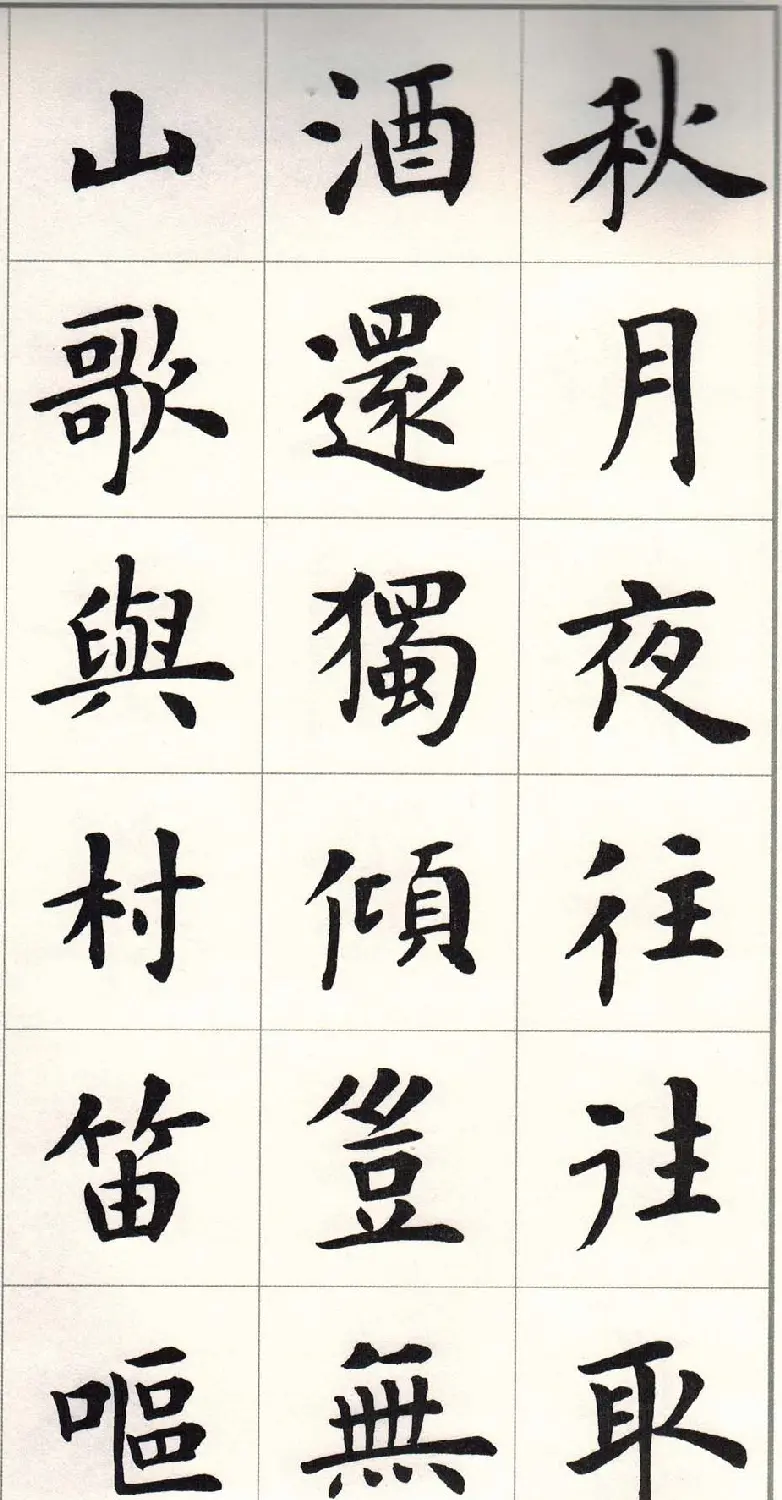 秋月夜往往取
酒還獨傾豈無
山歌與村笛嘔